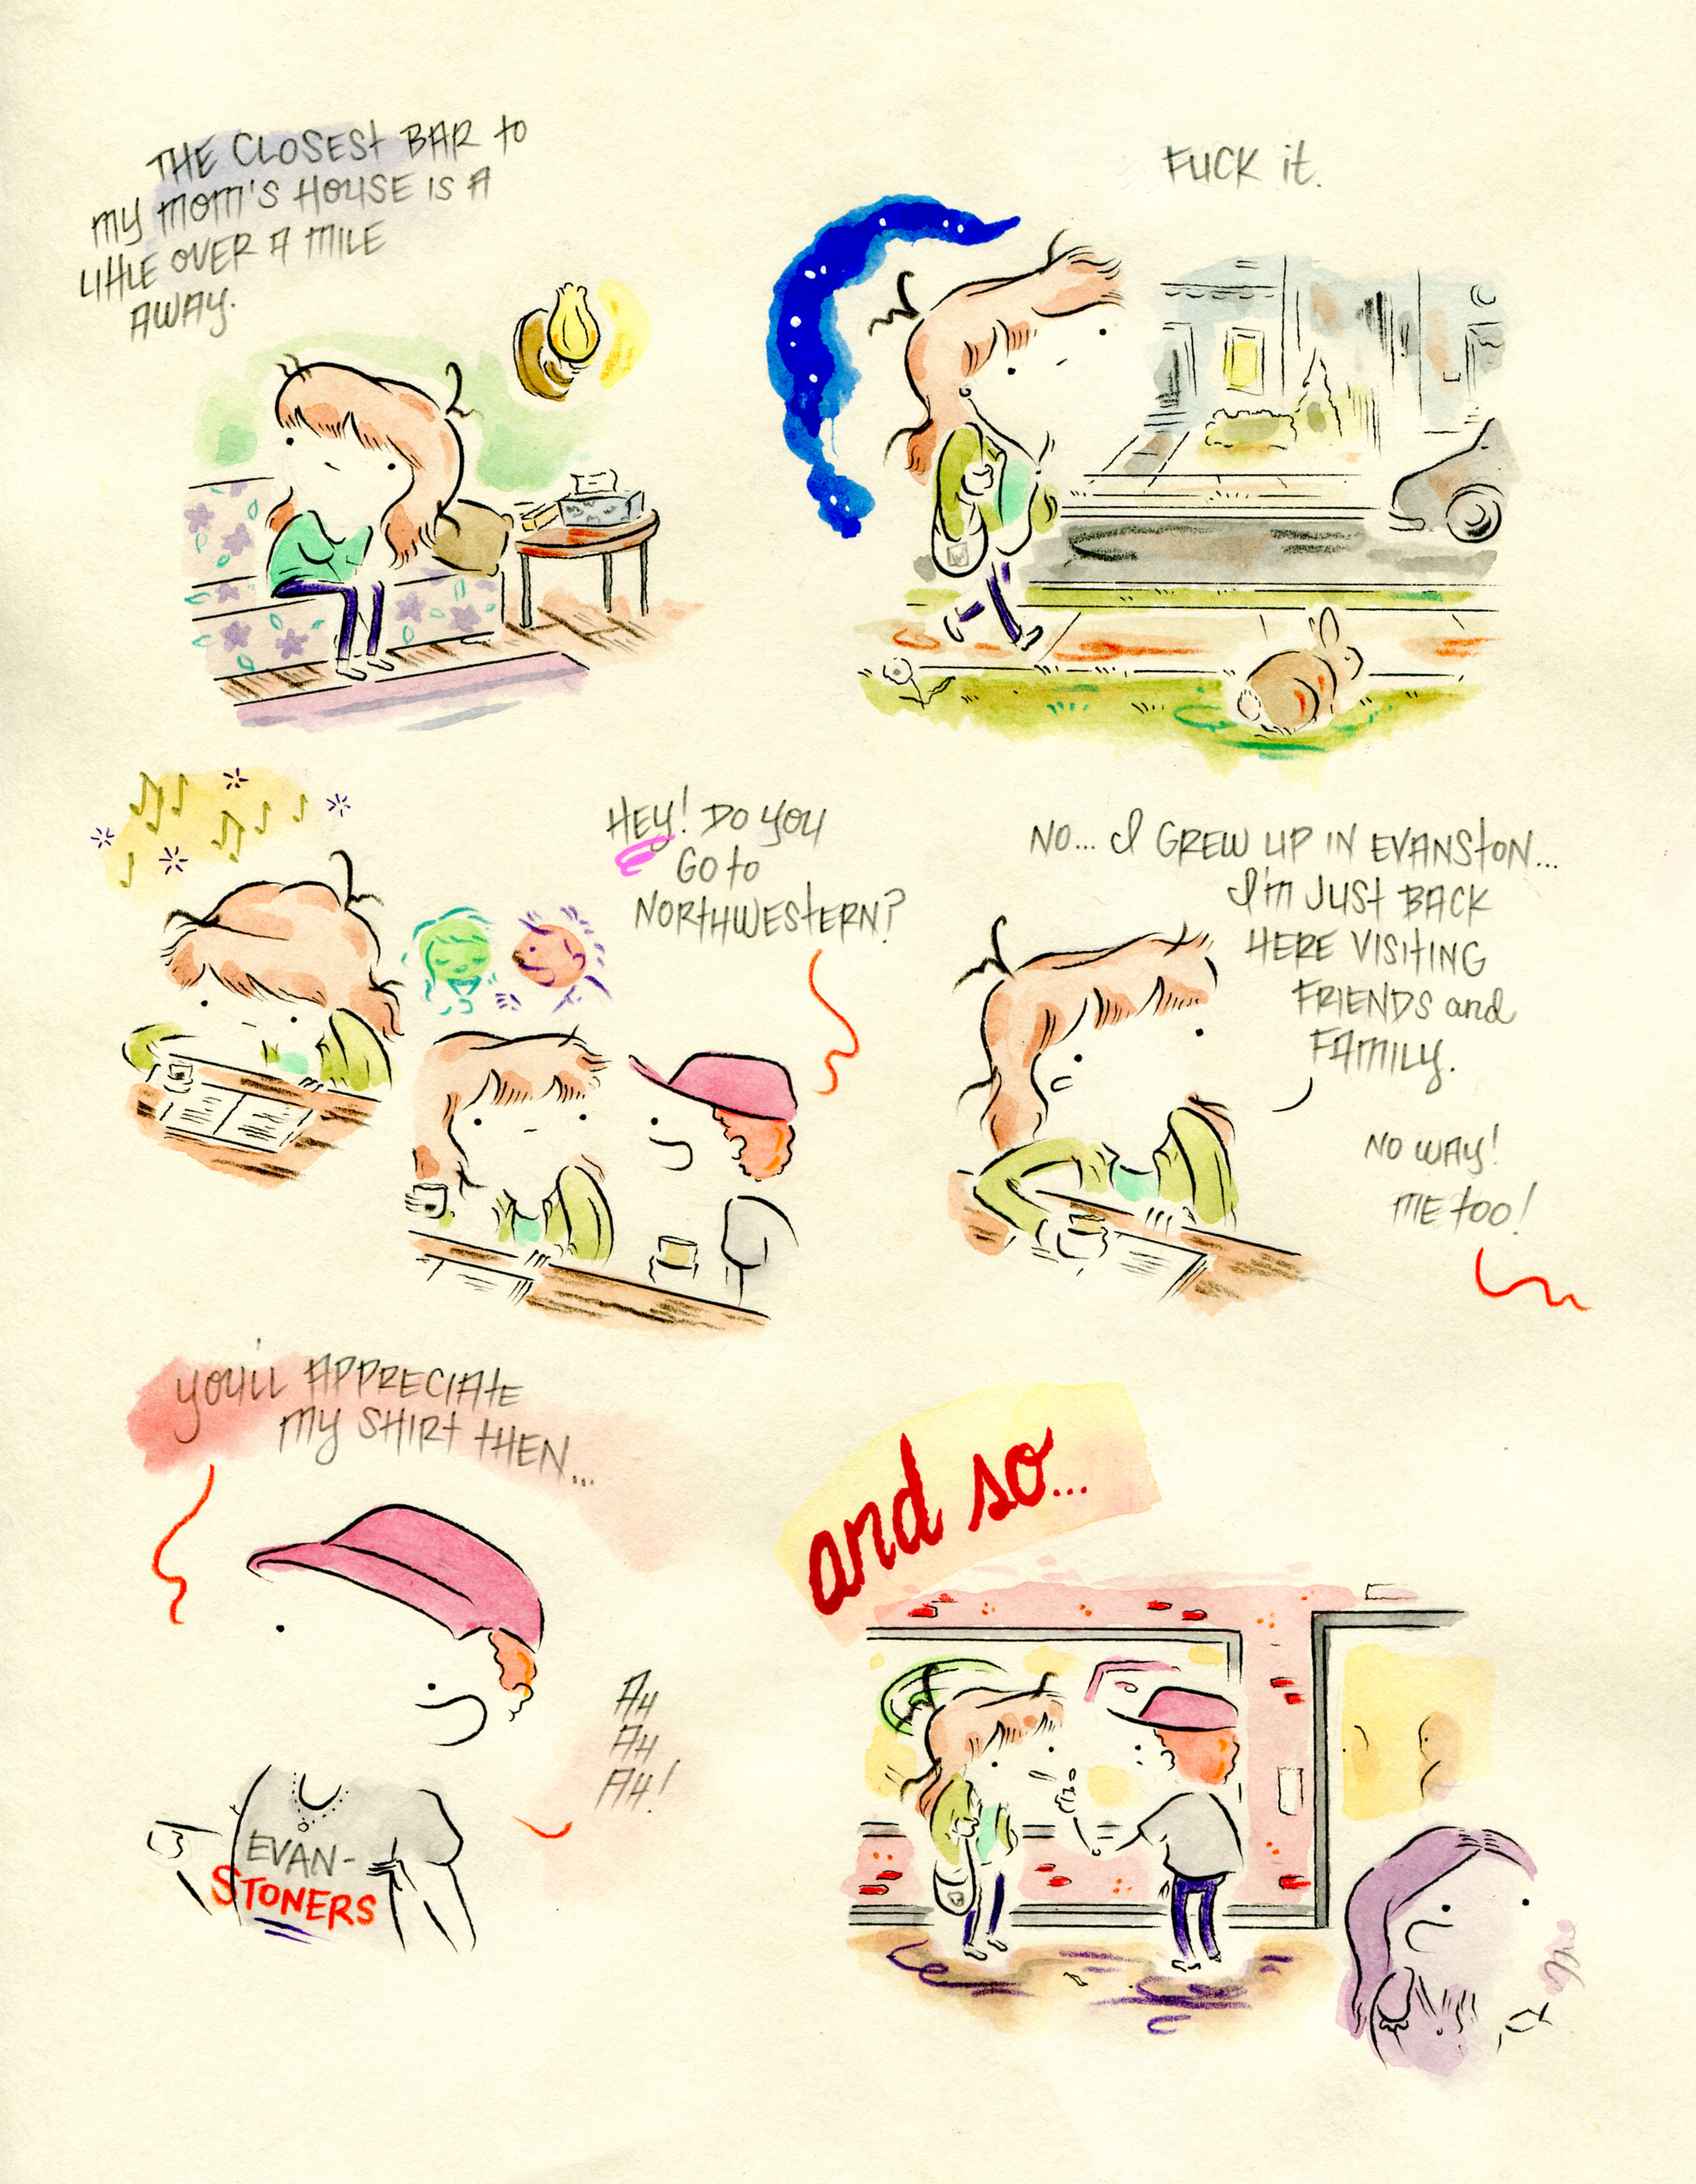 THE CLOSESt BAR to
MY MOM'S HOUSE IS A
LIttLE OVER A MILE
AWAY.
FUCK it.
HEY! DO YOU
GO to
NORtHWEStERN?
NO... I GREW UP IN EVANStON...
I'M JUSt BACK
HERE VISItING
FRIENDS and
FAMILY.
NO WAY!
ME tOO!
YOU'LL APPRECIAtE
MY SHIRt tHEN...
EVAN-
STONERS
and so...